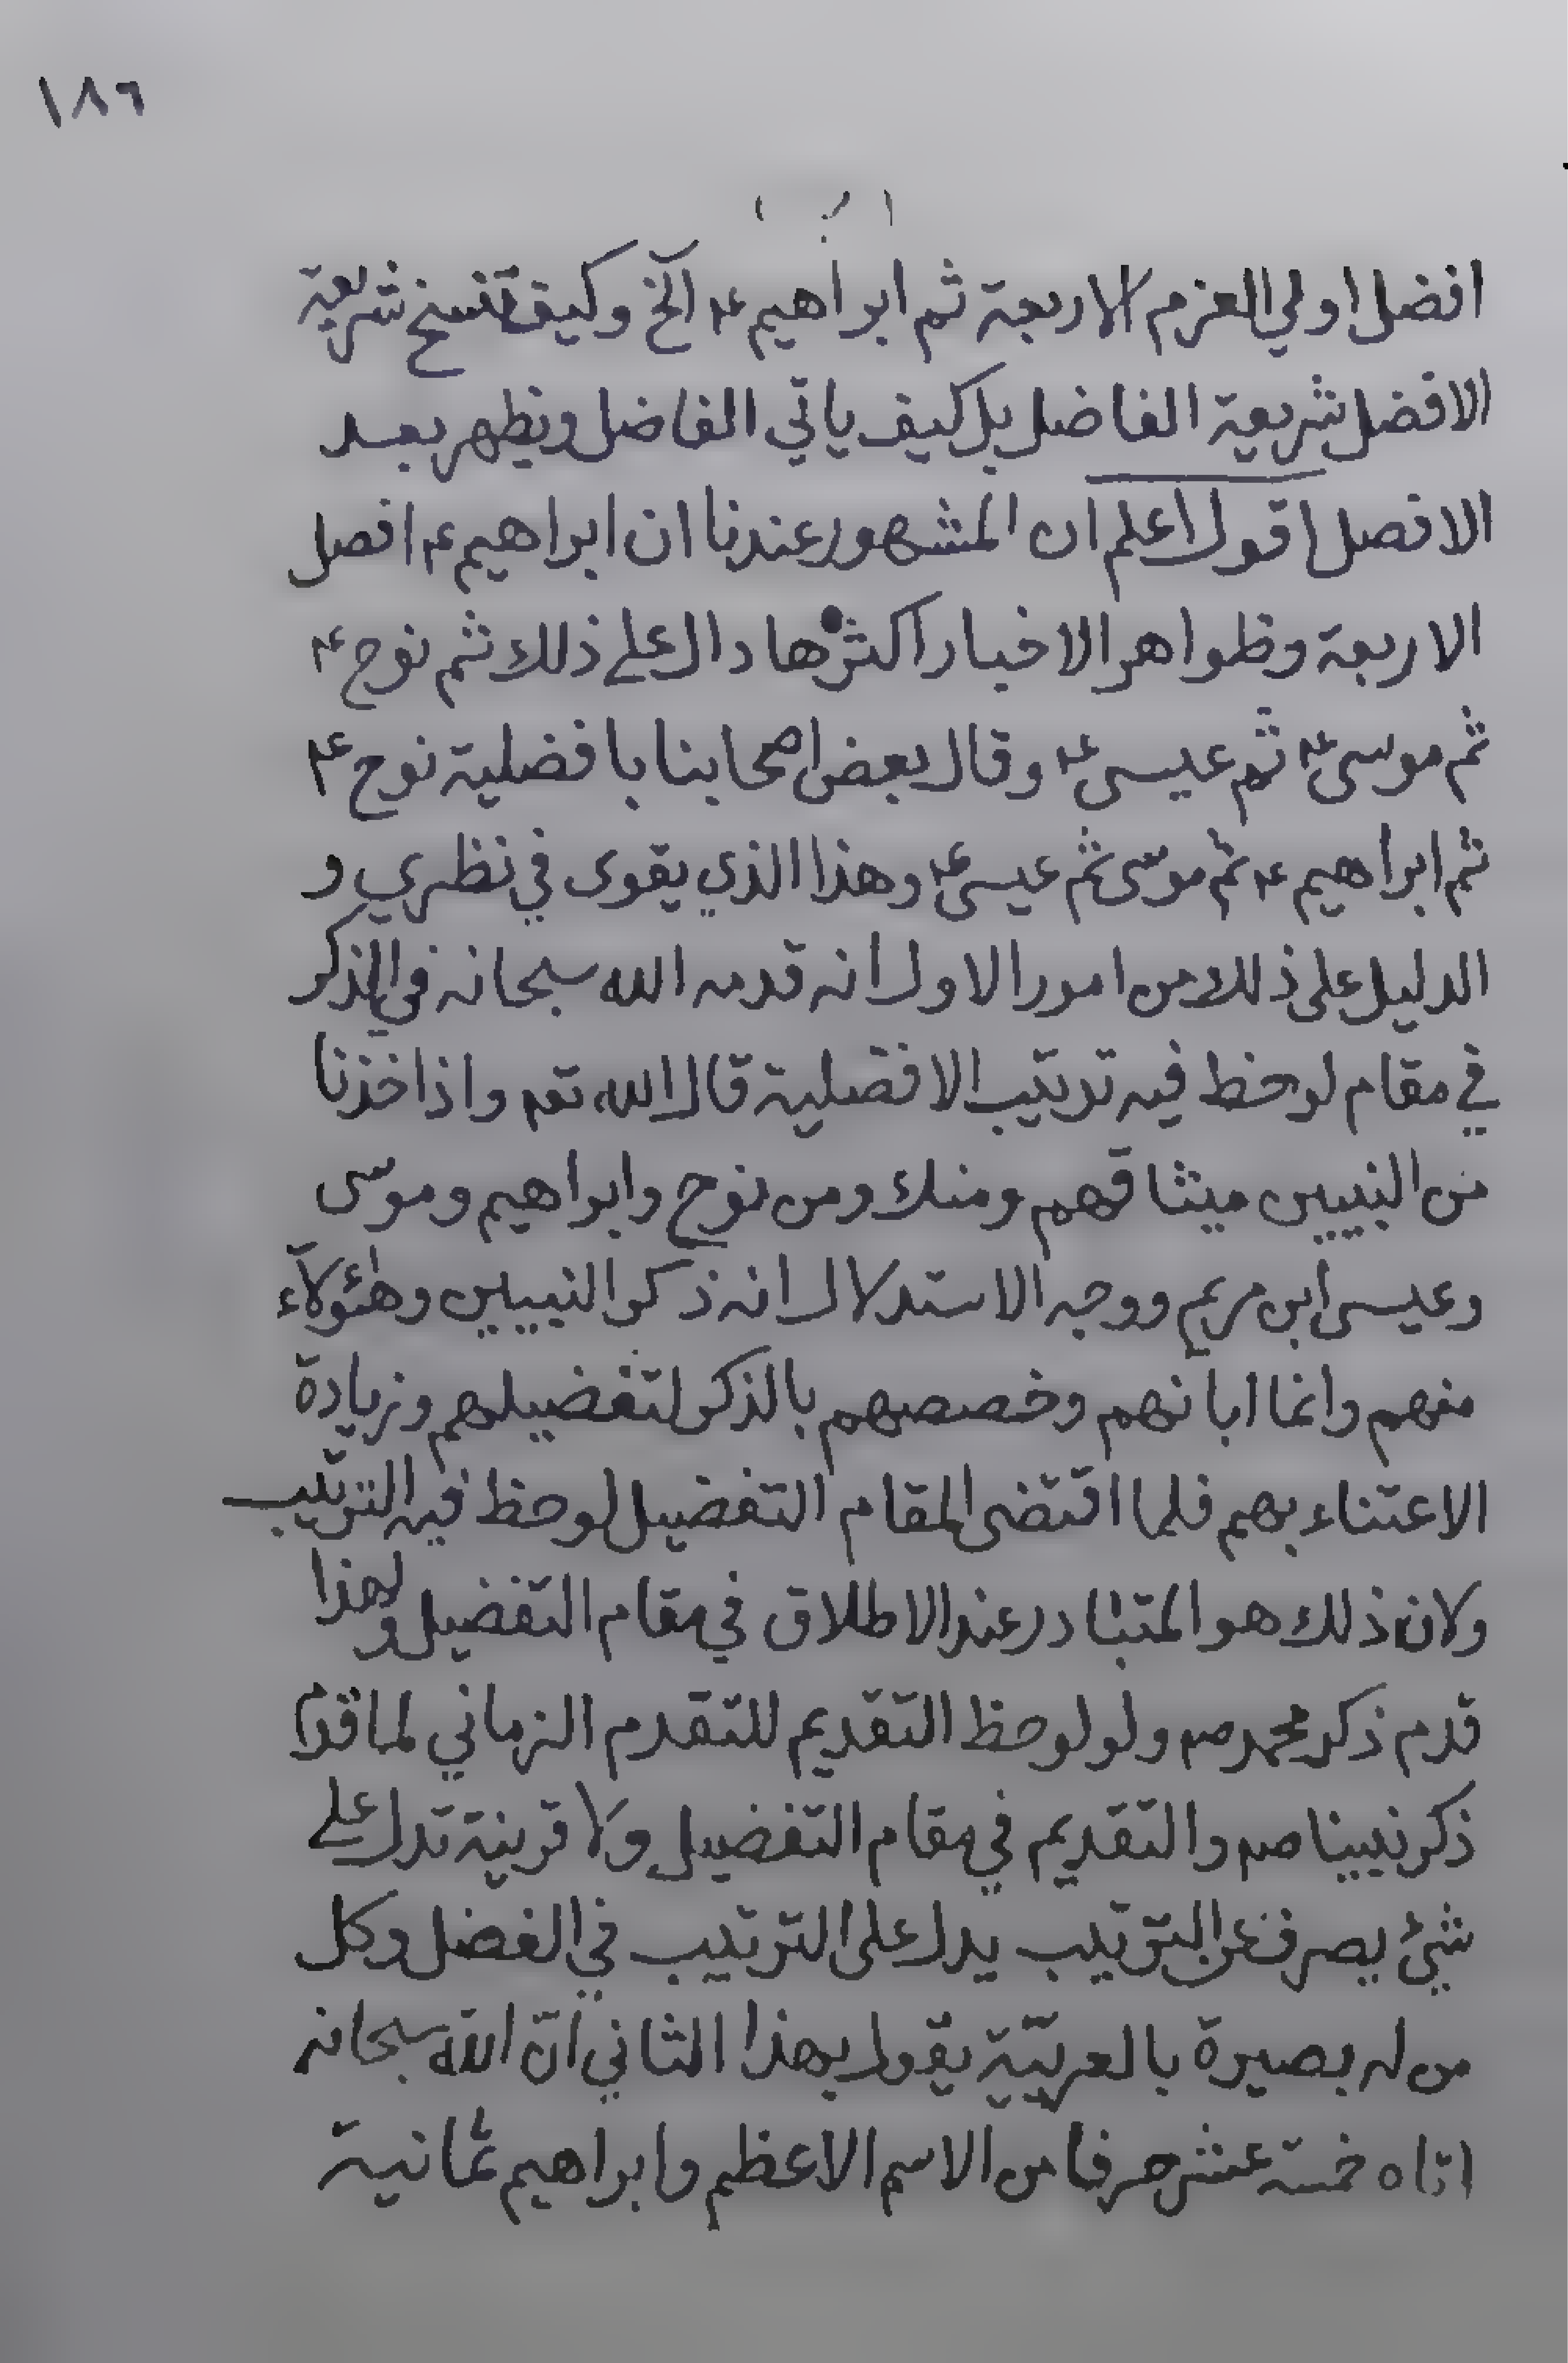 ١٨٦
افضل اولي العزم الاربعة ثم ابراهيم ع الخ وكيف تنسخ شريعة
الافضل شريعة الفاضل بل كيف ياتي الفاضل ويظهر بعد
الافضل اقول اعلم ان المشهور عندنا ان ابراهيم ع افضل
الاربعة وظواهر الاخبار اكثرها دال على ذلك ثم نوح ع
ثم موسى ع ثم عيسى ع وقال بعض اصحابنا بافضلية نوح ع
ثم ابراهيم ع ثم موسى ثم عيسى ع وهذا الذي يقوى في نظري و
الدليل على ذلك من امور الاول انه قدمه الله سبحانه في الذكر
في مقام لوحظ فيه ترتيب الافضلية قال الله تعه واذ اخذنا
من النبيين ميثاقهم ومنك ومن نوح وابراهيم وموسى
وعيسى ابن مريم ووجه الاستدلال انه ذكر النبيين وهٰؤلآء
منهم وانما ابانهم وخصصهم بالذكر لتفضيلهم وزيادة
الاعتناء بهم فلما اقتضى المقام التفضيل لوحظ فيه الترتيب
ولان ذلك هو المتبادر عند الاطلاق في مقام التفضيل ولهذا
قدم ذكر محمد صه ولو لوحظ التقديم للتقدم الزماني لما قدم
ذكر نبينا صه والتقديم في مقام التفضيل ولا قرينة تدل على
شئ يصرف عن الترتيب يدل على الترتيب في الفضل وكل
من له بصيرة بالعربيّة يقول بهذا الثاني انّ الله سبحانه
اتاه خمسة عشر حرفا من الاسم الاعظم وابراهيم ثمانية